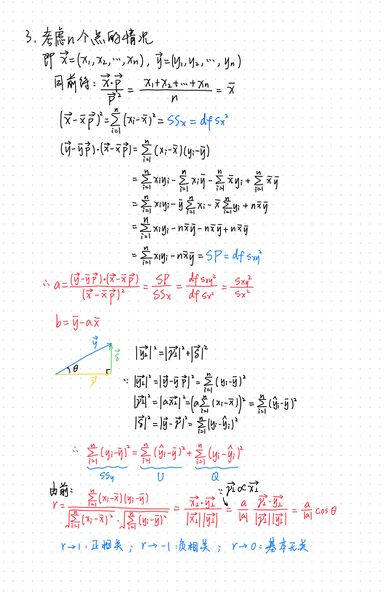 3. 考虑n个点的情况
即 x⃗=(x₁,x₂,…,xₙ), y⃗=(y₁,y₂,…,yₙ)
同前得: x⃗·p⃗/p⃗² = (x₁+x₂+…+xₙ)/n = x̄
(x⃗-x̄p⃗)²=∑ᵢ₌₁ⁿ(xᵢ-x̄)²=SSx=df sx²
(y⃗-ȳp⃗)·(x⃗-x̄p⃗)=∑ᵢ₌₁ⁿ(xᵢ-x̄)(yᵢ-ȳ)
=∑ᵢ₌₁ⁿxᵢyᵢ-∑ᵢ₌₁ⁿxᵢȳ-∑ᵢ₌₁ⁿx̄yᵢ+∑ᵢ₌₁ⁿx̄ȳ
=∑ᵢ₌₁ⁿxᵢyᵢ-ȳ∑ᵢ₌₁ⁿxᵢ-x̄∑ᵢ₌₁ⁿyᵢ+nx̄ȳ
=∑ᵢ₌₁ⁿxᵢyᵢ-nx̄ȳ-nx̄ȳ+nx̄ȳ
=∑ᵢ₌₁ⁿxᵢyᵢ-nx̄ȳ=SP=df sxy²
∴ a=(y⃗-ȳp⃗)·(x⃗-x̄p⃗)/(x⃗-x̄p⃗)²=SP/SSx=df sxy²/df sx²=sxy²/sx²
b=ȳ-ax̄
y⃗ δ⃗ θ p⃗
|y⃗₂|²=|p⃗₂|²+|δ⃗|²
∵ |y⃗₂|²=|y⃗-ȳp⃗|²=∑ᵢ₌₁ⁿ(yᵢ-ȳ)²
|p⃗₂|²=|ax⃗₂|²=(a∑ᵢ₌₁ⁿ(xᵢ-x̄))²=∑ᵢ₌₁ⁿ(ŷᵢ-ȳ)²
|δ⃗|²=|y⃗-p⃗|²=∑ᵢ₌₁ⁿ(yᵢ-ŷᵢ)²
∴ ∑ᵢ₌₁ⁿ(yᵢ-ȳ)²=∑ᵢ₌₁ⁿ(ŷᵢ-ȳ)²+∑ᵢ₌₁ⁿ(yᵢ-ŷᵢ)²
SSy U Q
由前: ∵p⃗₂∝x⃗₂
r=∑ᵢ₌₁ⁿ(xᵢ-x̄)(yᵢ-ȳ)/(√∑ᵢ₌₁ⁿ(xᵢ-x̄)²·√∑ᵢ₌₁ⁿ(yᵢ-ȳ)²)=x⃗₂·y⃗₂/|x⃗₂||y⃗₂|=a/|a| p⃗₂·y⃗₂/|p⃗₂||y⃗₂|=a/|a| cosθ
r→1:正相关; r→-1:负相关; r→0:基本无关